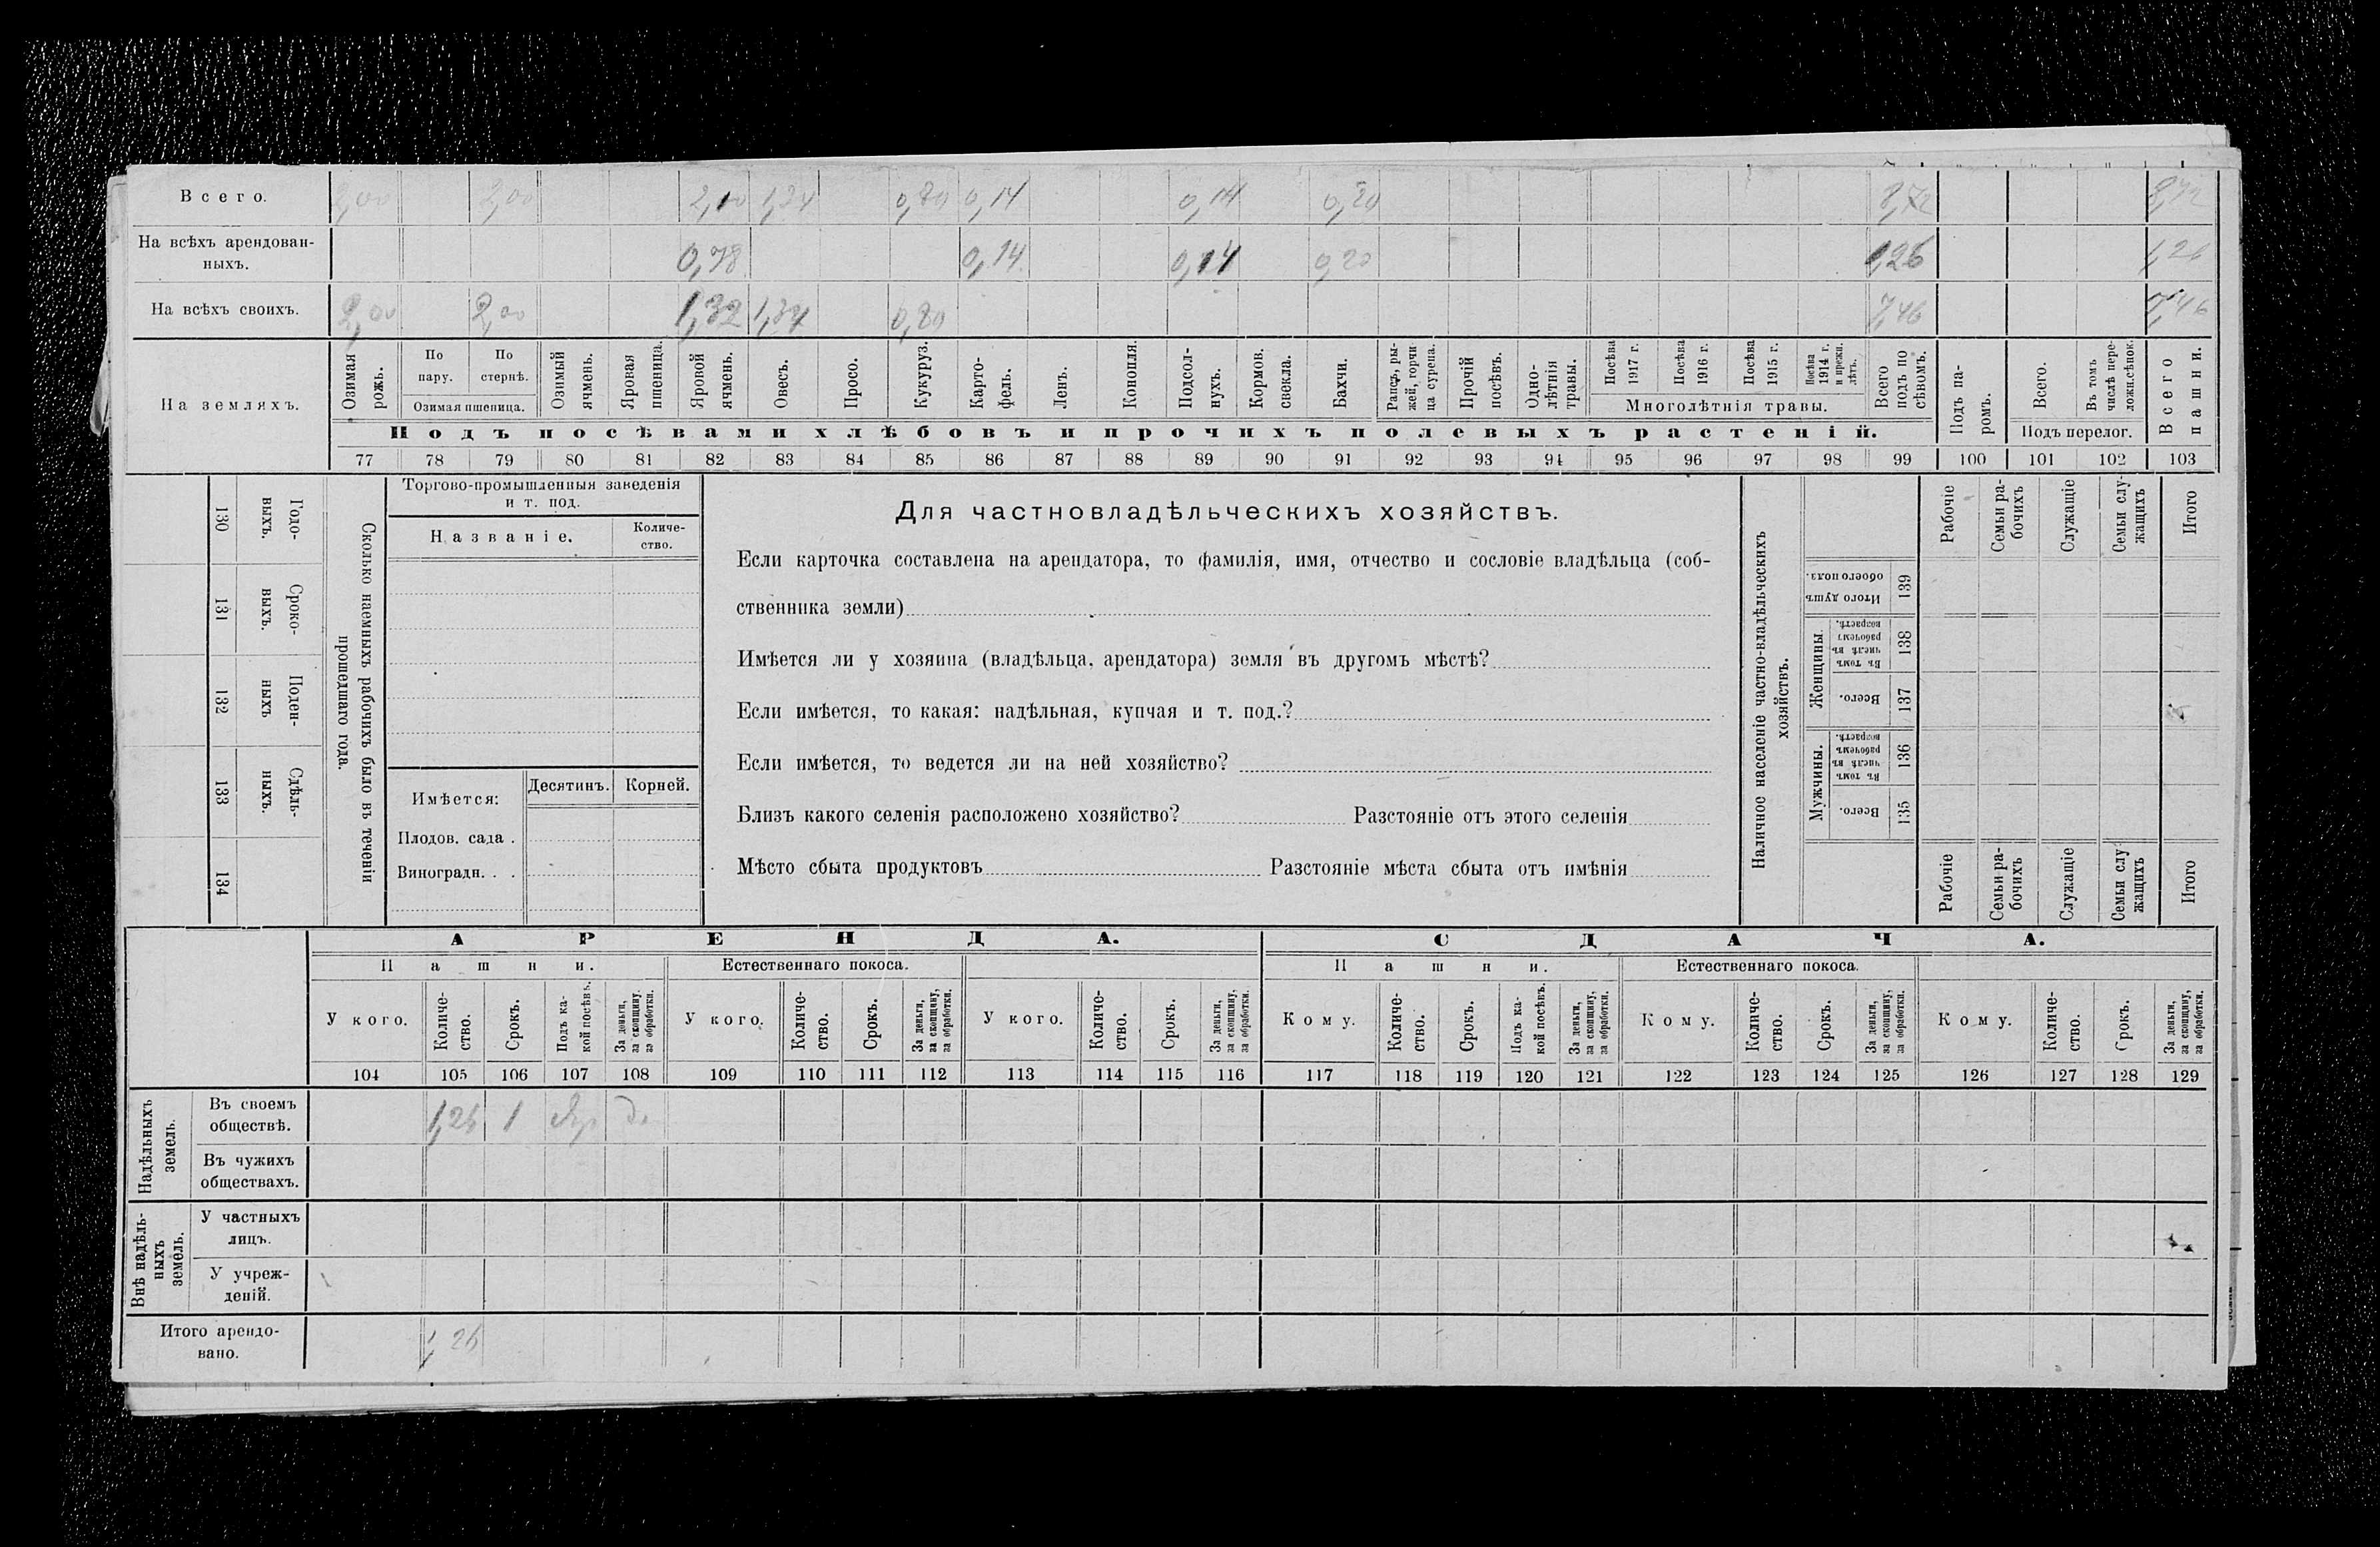 Всего. 2,00 2,00 2,10 1,34 0,80 0,14 0,14 0,20 8,72 8,72
На всѣхъ арендован-
ныхъ. 0,78 0,14 0,14 0,20 1,26 1,26
На всѣхъ своихъ. 2,00 2,00 1,32 1,34 0,80 7,46 7,46
На земляхъ.
Озимая рожь.
По пару.
По стернѣ.
Озимая пшеница.
Озимый ячмень.
Яровая пшеница.
Яровой ячмень.
Овесъ.
Просо.
Кукуруз.
Карто-
фель.
Ленъ.
Конопля.
Подсол-
нухъ.
Кормов.
свекла.
Бахчи.
Рапсъ, ры-
жей, горчи-
ца сурепа.
Прочій
посѣвъ.
Одно-
лѣтнія
травы.
Посѣва
1917 г.
Посѣва
1916 г.
Посѣва
1915 г.
Посѣва
1914 г.
и прежн.
лѣтъ.
Многолѣтнія травы.
Всего
подъ по
сѣвомъ.
Подъ па-
ромъ.
Всего.
Въ томъ
числѣ пере-
ложн.сѣнок.
Подъ перелог.
Всего
пашни.
Подъ посѣвами хлѣбовъ и прочихъ полевыхъ растеній.
77 78 79 80 81 82 83 84 85 86 87 88 89 90 91 92 93 94 95 96 97 98 99 100 101 102 103
Годо-
выхъ.
130
Сроко-
выхъ.
131
Поден-
ныхъ
132
Сдѣль-
ныхъ.
133
134
Сколько наемныхъ рабочихъ было въ теченіи
прошедшаго года.
Торгово-промышленныя заведенія
и т. под.
Названіе.
Количе-
ство.
Имѣется: Десятинъ. Корней.
Плодов. сада .
Виноградн. . .
Для частновладѣльческихъ хозяйствъ.
Если карточка составлена на арендатора, то фамилія, имя, отчество и сословіе владѣльца (соб-
ственника земли)
Имѣется ли у хозяина (владѣльца, арендатора) земля въ другомъ мѣстѣ?
Если имѣется, то какая: надѣльная, купчая и т. под.?
Если имѣется, то ведется ли на ней хозяйство?
Близъ какого селенія расположено хозяйство? Разстояніе отъ этого селенія
Мѣсто сбыта продуктовъ Разстояніе мѣста сбыта отъ имѣнія
Наличное населеніе частно-владѣльческихъ
хозяйствъ.
Рабочіе
Семьи ра-
бочихъ
Служащіе
Семьи слу-
жащихъ
Итого
Итого душъ
обоего пола.
139
Женщины.
Въ томъ
числѣ въ
рабочемъ
возрастѣ.
138
Всего.
137
Мужчины.
Въ томъ
числѣ въ
рабочемъ
возрастѣ.
136
Всего.
135
Рабочіе
Семьи ра-
бочихъ
Служащіе
Семьи слу
жащихъ
Итого
АРЕНДА. СДАЧА.
Пашни. Естественнаго покоса. Пашни. Естественнаго покоса.
У кого.
Количе-
ство.
Срокъ.
Подъ ка-
кой посѣвъ.
За деньги,
за скопщину,
за обработки.
У кого.
Количе-
ство.
Срокъ.
За деньги,
за скопщину,
за обработки.
У кого.
Количе-
ство.
Срокъ.
За деньги,
за скопщину,
за обработки.
Кому.
Количе-
ство.
Срокъ.
Подъ ка-
кой посѣвъ.
За деньги,
за скопщину,
за обработки.
Кому.
Количе-
ство.
Срокъ.
За деньги,
за скопщину,
за обработки.
Кому.
Количе-
ство.
Срокъ.
За деньги,
за скопщину,
за обработки.
104 105 106 107 108 109 110 111 112 113 114 115 116 117 118 119 120 121 122 123 124 125 126 127 128 129
Надѣльныхъ
земель.
Въ своемъ
обществѣ. 1,26 1
Въ чужихъ
обществахъ.
Внѣ надѣль-
ныхъ
земель.
У частныхъ
лицъ.
У учреж-
деній.
Итого арендо-
вано. 1,26